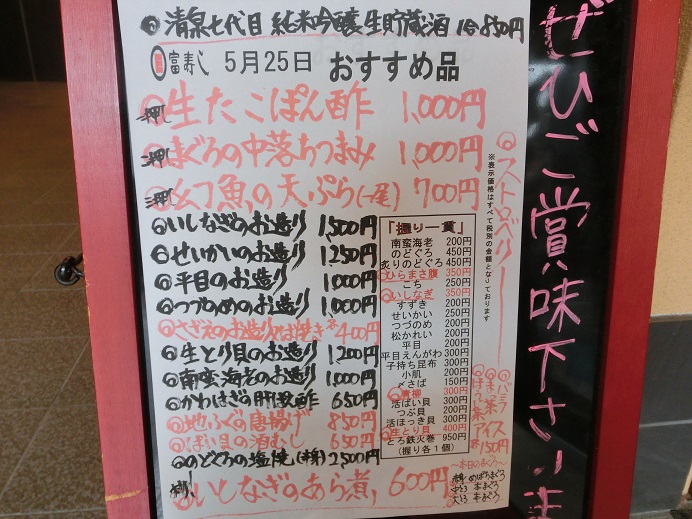 清泉七代目 純米吟醸生貯蔵酒 1合850円
富寿し 5月25日 おすすめ品
一押し 生たこぽん酢 1,000円
二押し まぐろの中落ちつまみ 1,000円
三押し 幻魚の天ぷら(一尾) 700円
いしなぎのお造り 1,500円
せいかいのお造り 1,250円
平目のお造り 1,000円
つづのめのお造り 1,000円
さざえのお造り又は焼き 400円
生とり貝のお造り 1,200円
南蛮海老のお造り 1,000円
かわはぎの肝数酢 650円
地ふぐの唐揚げ 850円
ばい貝の酒むし 650円
のどぐろの塩焼(半身) 2,500円
いしなぎのあら煮 600円
「握り一貫」
南蛮海老 200円
のどぐろ 450円
炙りのどぐろ 450円
ひらまさ腹 350円
こち 250円
いしなぎ 350円
すずき 200円
せいかい 250円
つづのめ 200円
松かれい 200円
平目 200円
平目えんがわ 300円
子持ち昆布 300円
小肌 200円
〆さば 150円
青柳 300円
活ばい貝 300円
つぶ貝 200円
活ほっき貝 300円
生とり貝 400円
とろ鉄火巻 950円
(握り各1個)
※表示価格はすべて税別の金額となっております
ストロベリー
バニラ
ほうじ茶
アイス
各150円
~本日のまぐろ~
赤身 めばちまぐろ
中とろ 本まぐろ
大とろ 本まぐろ
ぜひご賞味下さいま